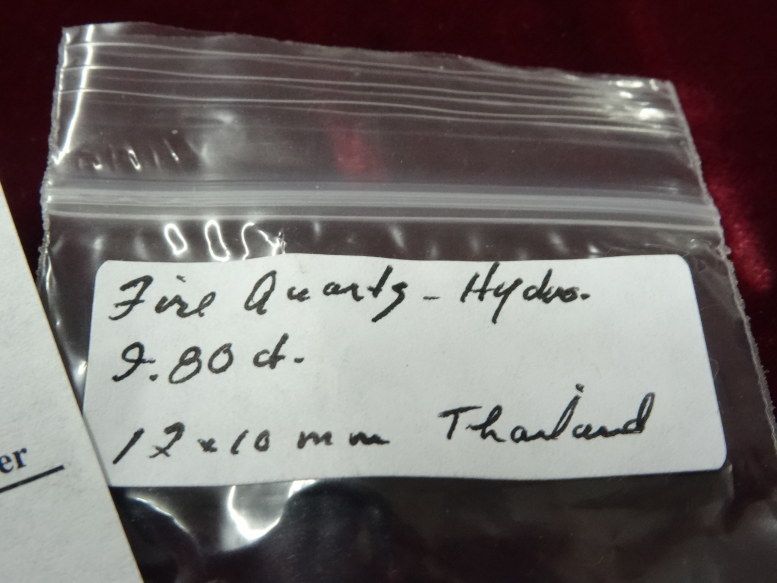 Fire Quartz - Hydro.
9.80 ct.
12 x 10 mm Thailand
er